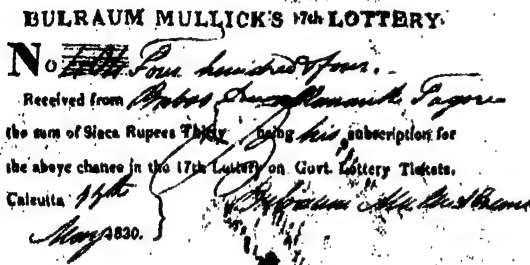 BULRAUM MULLICK'S 17th LOTTERY.
No Four hundred & four.
Received from Baboo Dwarkanauth Tagore
the sum of Sicca Rupees Thirty being his subscription for
the above chance in the 17th Lottery on Govt. Lottery Tickets.
Calcutta 17th
May 1830.
Bulraum Mullick